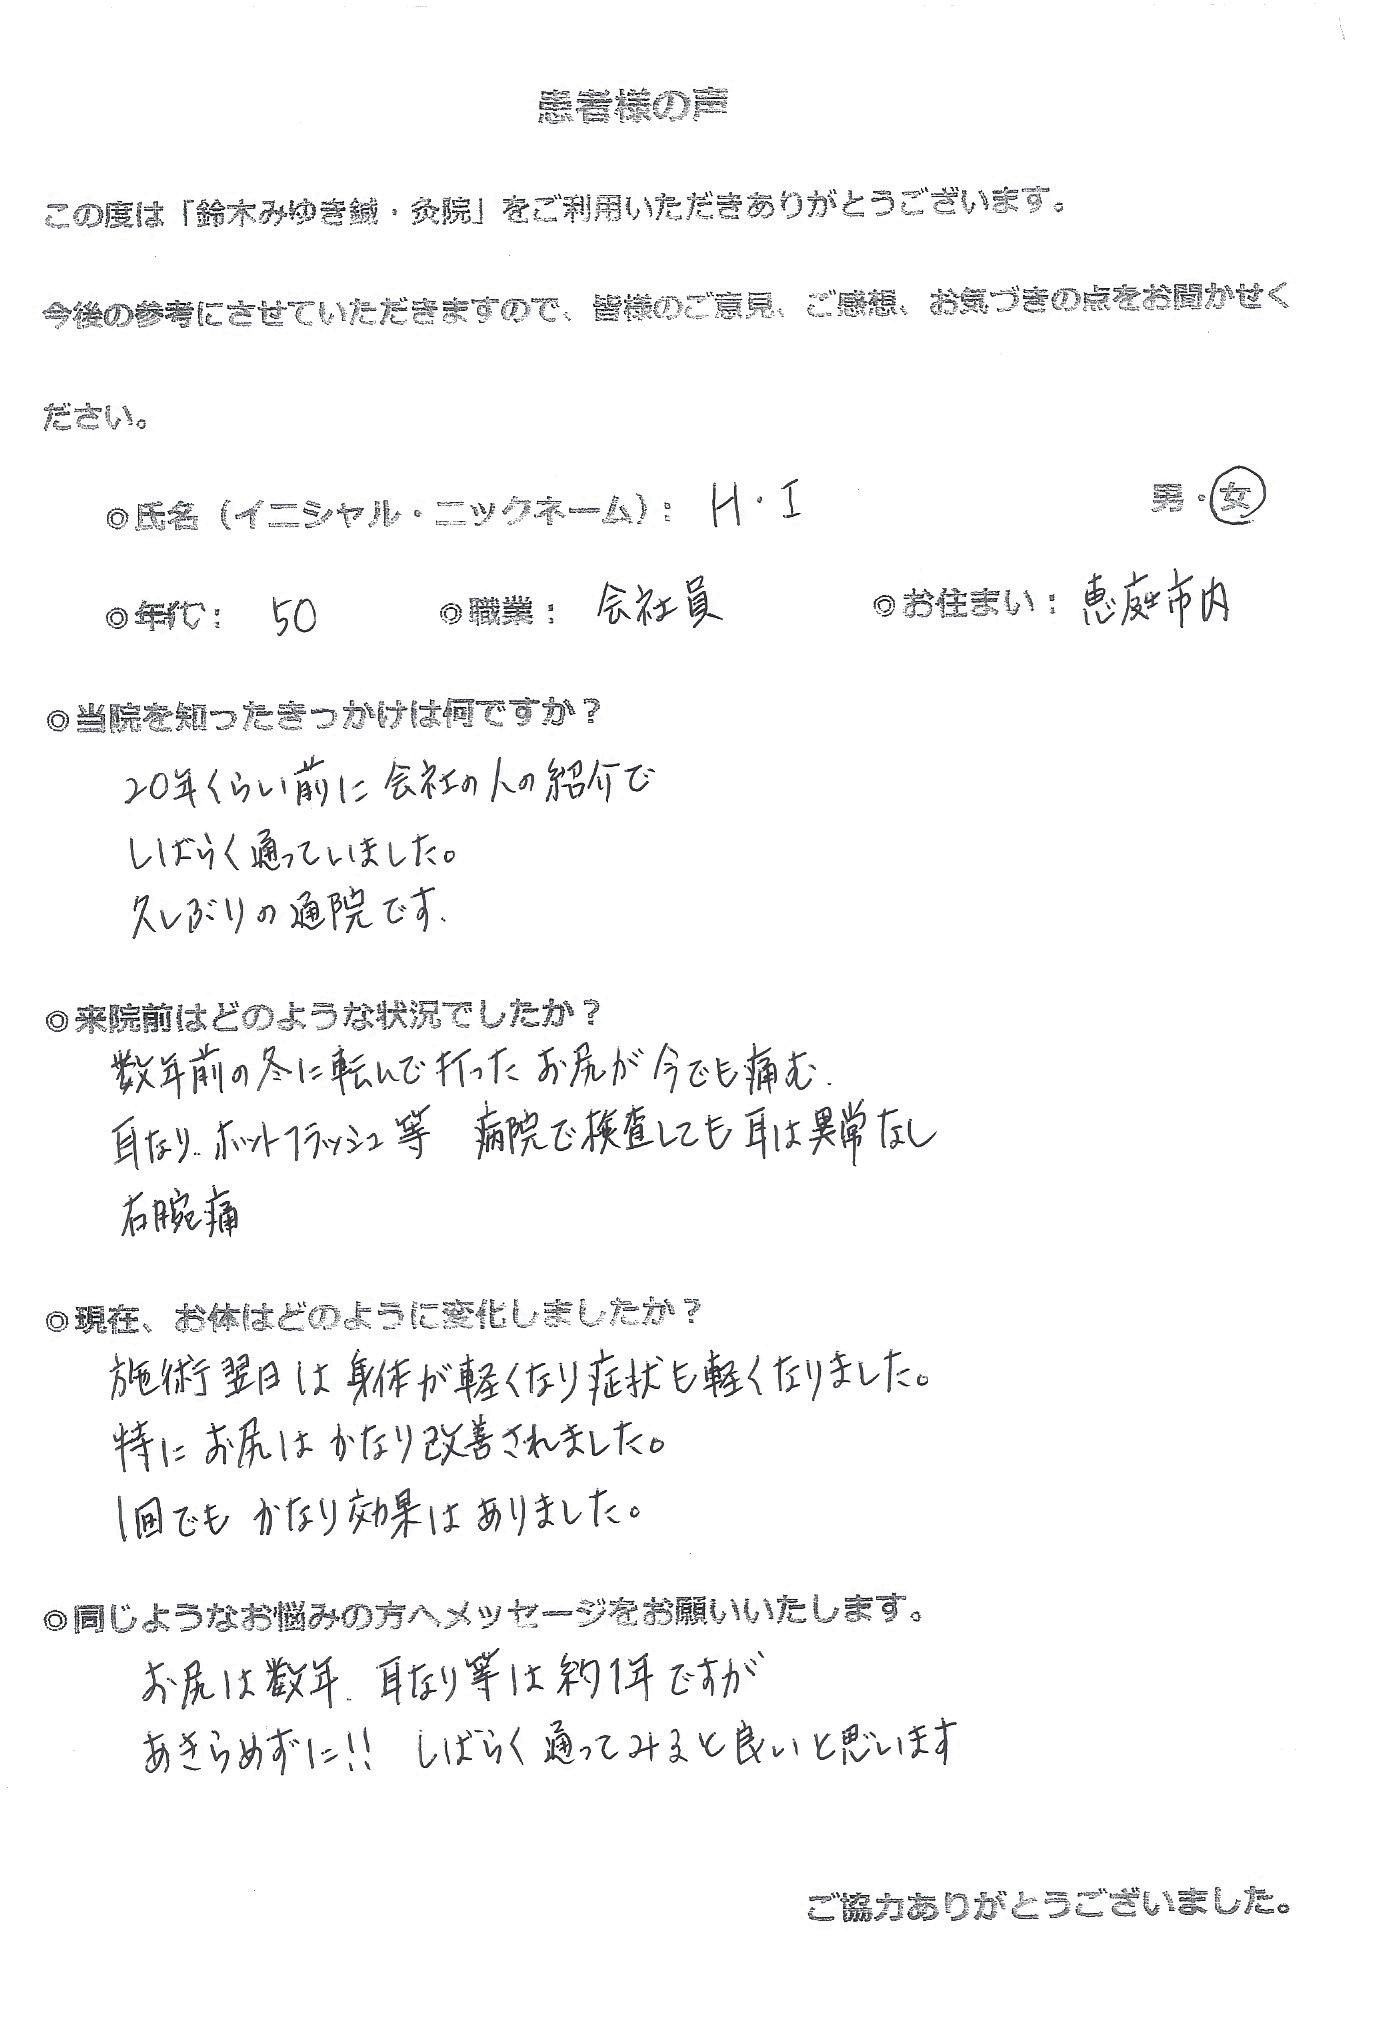 患者様の声
この度は「鈴木みゆき鍼・灸院」をご利用いただきありがとうございます。
今後の参考にさせていただきますので、皆様のご意見、ご感想、お気づきの点をお聞かせく
ださい。
◎氏名（イニシャル・ニックネーム）： H・I 男・女
◎年代： 50 ◎職業： 会社員 ◎お住まい： 恵庭市内
◎当院を知ったきっかけは何ですか？
20年くらい前に会社の人の紹介で
しばらく通っていました。
久しぶりの通院です.
◎来院前はどのような状況でしたか？
数年前の冬に転んで打ったお尻が今でも痛む.
耳なり.ホットフラッシュ等 病院で検査しても耳は異常なし
右腕痛
◎現在、お体はどのように変化しましたか？
施術翌日は身体が軽くなり症状も軽くなりました。
特にお尻はかなり改善されました。
1回でもかなり効果はありました。
◎同じようなお悩みの方へメッセージをお願いいたします。
お尻は数年.耳なり等は約1年ですが
あきらめずに!! しばらく通ってみると良いと思います
ご協力ありがとうございました。